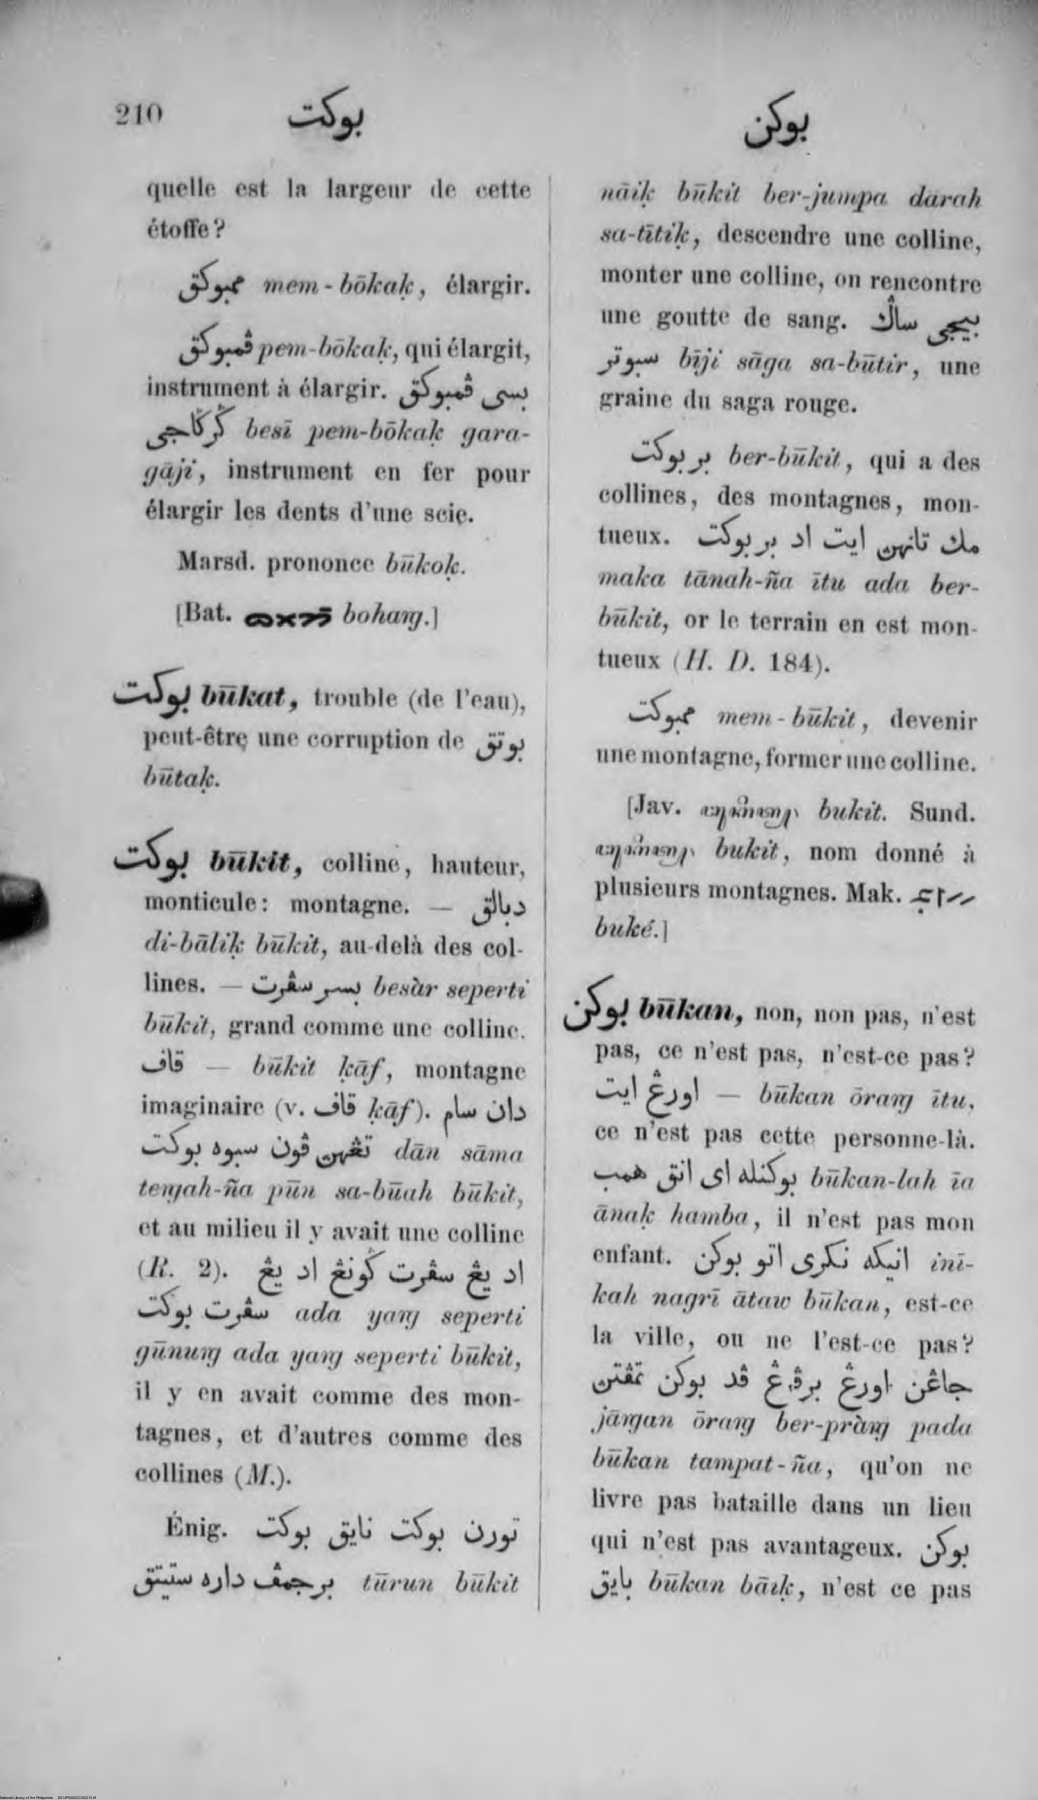 210
بوكت
بوكن
quelle est la largeur de cette
étoffe?
ممبوكق mem-bōkaḳ, élargir.
ڤمبوكق pem-bōkaḳ, qui élargit,
instrument à élargir. بسى ڤمبوكق
ݢرݢاجى besī pem-bōkaḳ gara-
gāji, instrument en fer pour
élargir les dents d'une scie.
Marsd. prononce būkoḳ.
[Bat. bohaṅg.]
بوكت būkat, trouble (de l'eau),
peut-être une corruption de بوتق
būtaḳ.
بوكت būkit, colline, hauteur,
monticule: montagne. — دبالق
di-bālik būkit, au-delà des col-
lines. — بسر سڤرت besàr seperti
būkit, grand comme une colline.
قاف — būkit ḳāf, montagne
imaginaire (v. قاف ḳāf). دان سام
تڠهن ڤون سبوه بوكت dān sāma
teṅgah-ña pūn sa-būah būkit,
et au milieu il y avait une colline
(R. 2). اد يڠ سڤرت ݢونڠ اد يڠ
سڤرت بوكت ada yaṅg seperti
gūnuṅg ada yaṅg seperti būkit,
il y en avait comme des mon-
tagnes, et d'autres comme des
collines (M.).
Énig. تورن بوكت نايق بوكت
برجمڤ داره ستيتق tūrun būkit
nāiḳ būkit ber-jumpa dārah
sa-tītiḳ, descendre une colline,
monter une colline, on rencontre
une goutte de sang. بيجى ساݢ
سبوتر bīji sāga sa-būtir, une
graine du saga rouge.
بربوكت ber-būkit, qui a des
collines, des montagnes, mon-
tueux. مك تانهن ايت اد بربوكت
maka tānah-ña ītu ada ber-
būkit, or le terrain en est mon-
tueux (H. D. 184).
ممبوكت mem-būkit, devenir
une montagne, former une colline.
[Jav. bukit. Sund.
bukit, nom donné à
plusieurs montagnes. Mak.
buké.]
بوكن būkan, non, non pas, n'est
pas, ce n'est pas, n'est-ce pas?
اورڠ ايت — būkan ōraṅg ītu,
ce n'est pas cette personne-là.
بوكنله اى انق همب būkan-lah īa
ānaḳ hamba, il n'est pas mon
enfant. انيكه نكرى اتو بوكن inī-
kah nagrī ātaw būkan, est-ce
la ville, ou ne l'est-ce pas?
جاڠن اورڠ برڤرڠ ڤد بوكن تمڤتن
jāṅgan ōraṅg ber-pràṅg pada
būkan tampat-ña, qu'on ne
livre pas bataille dans un lieu
qui n'est pas avantageux. بوكن
بايق būkan bāiḳ, n'est ce pas